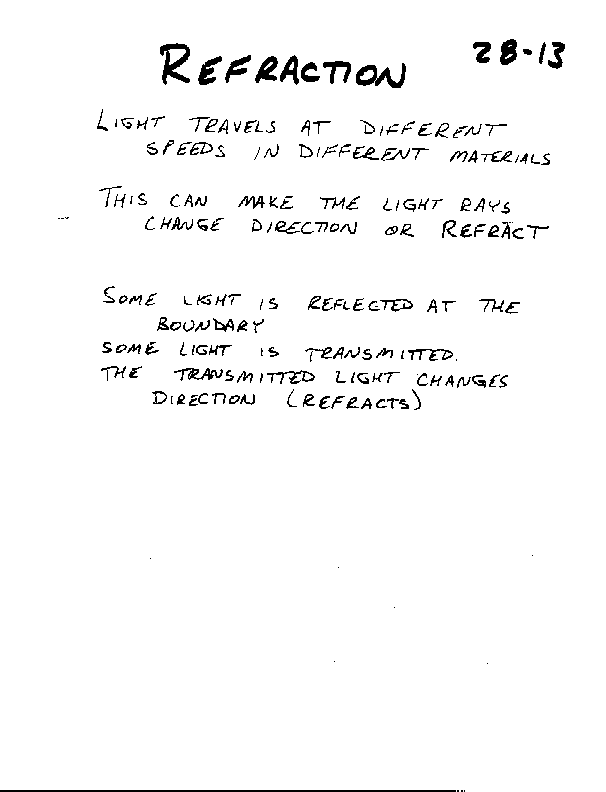 REFRACTION 28-13
LIGHT TRAVELS AT DIFFERENT
SPEEDS IN DIFFERENT MATERIALS
THIS CAN MAKE THE LIGHT RAYS
CHANGE DIRECTION OR REFRACT
SOME LIGHT IS REFLECTED AT THE
BOUNDARY
SOME LIGHT IS TRANSMITTED.
THE TRANSMITTED LIGHT CHANGES
DIRECTION (REFRACTS)